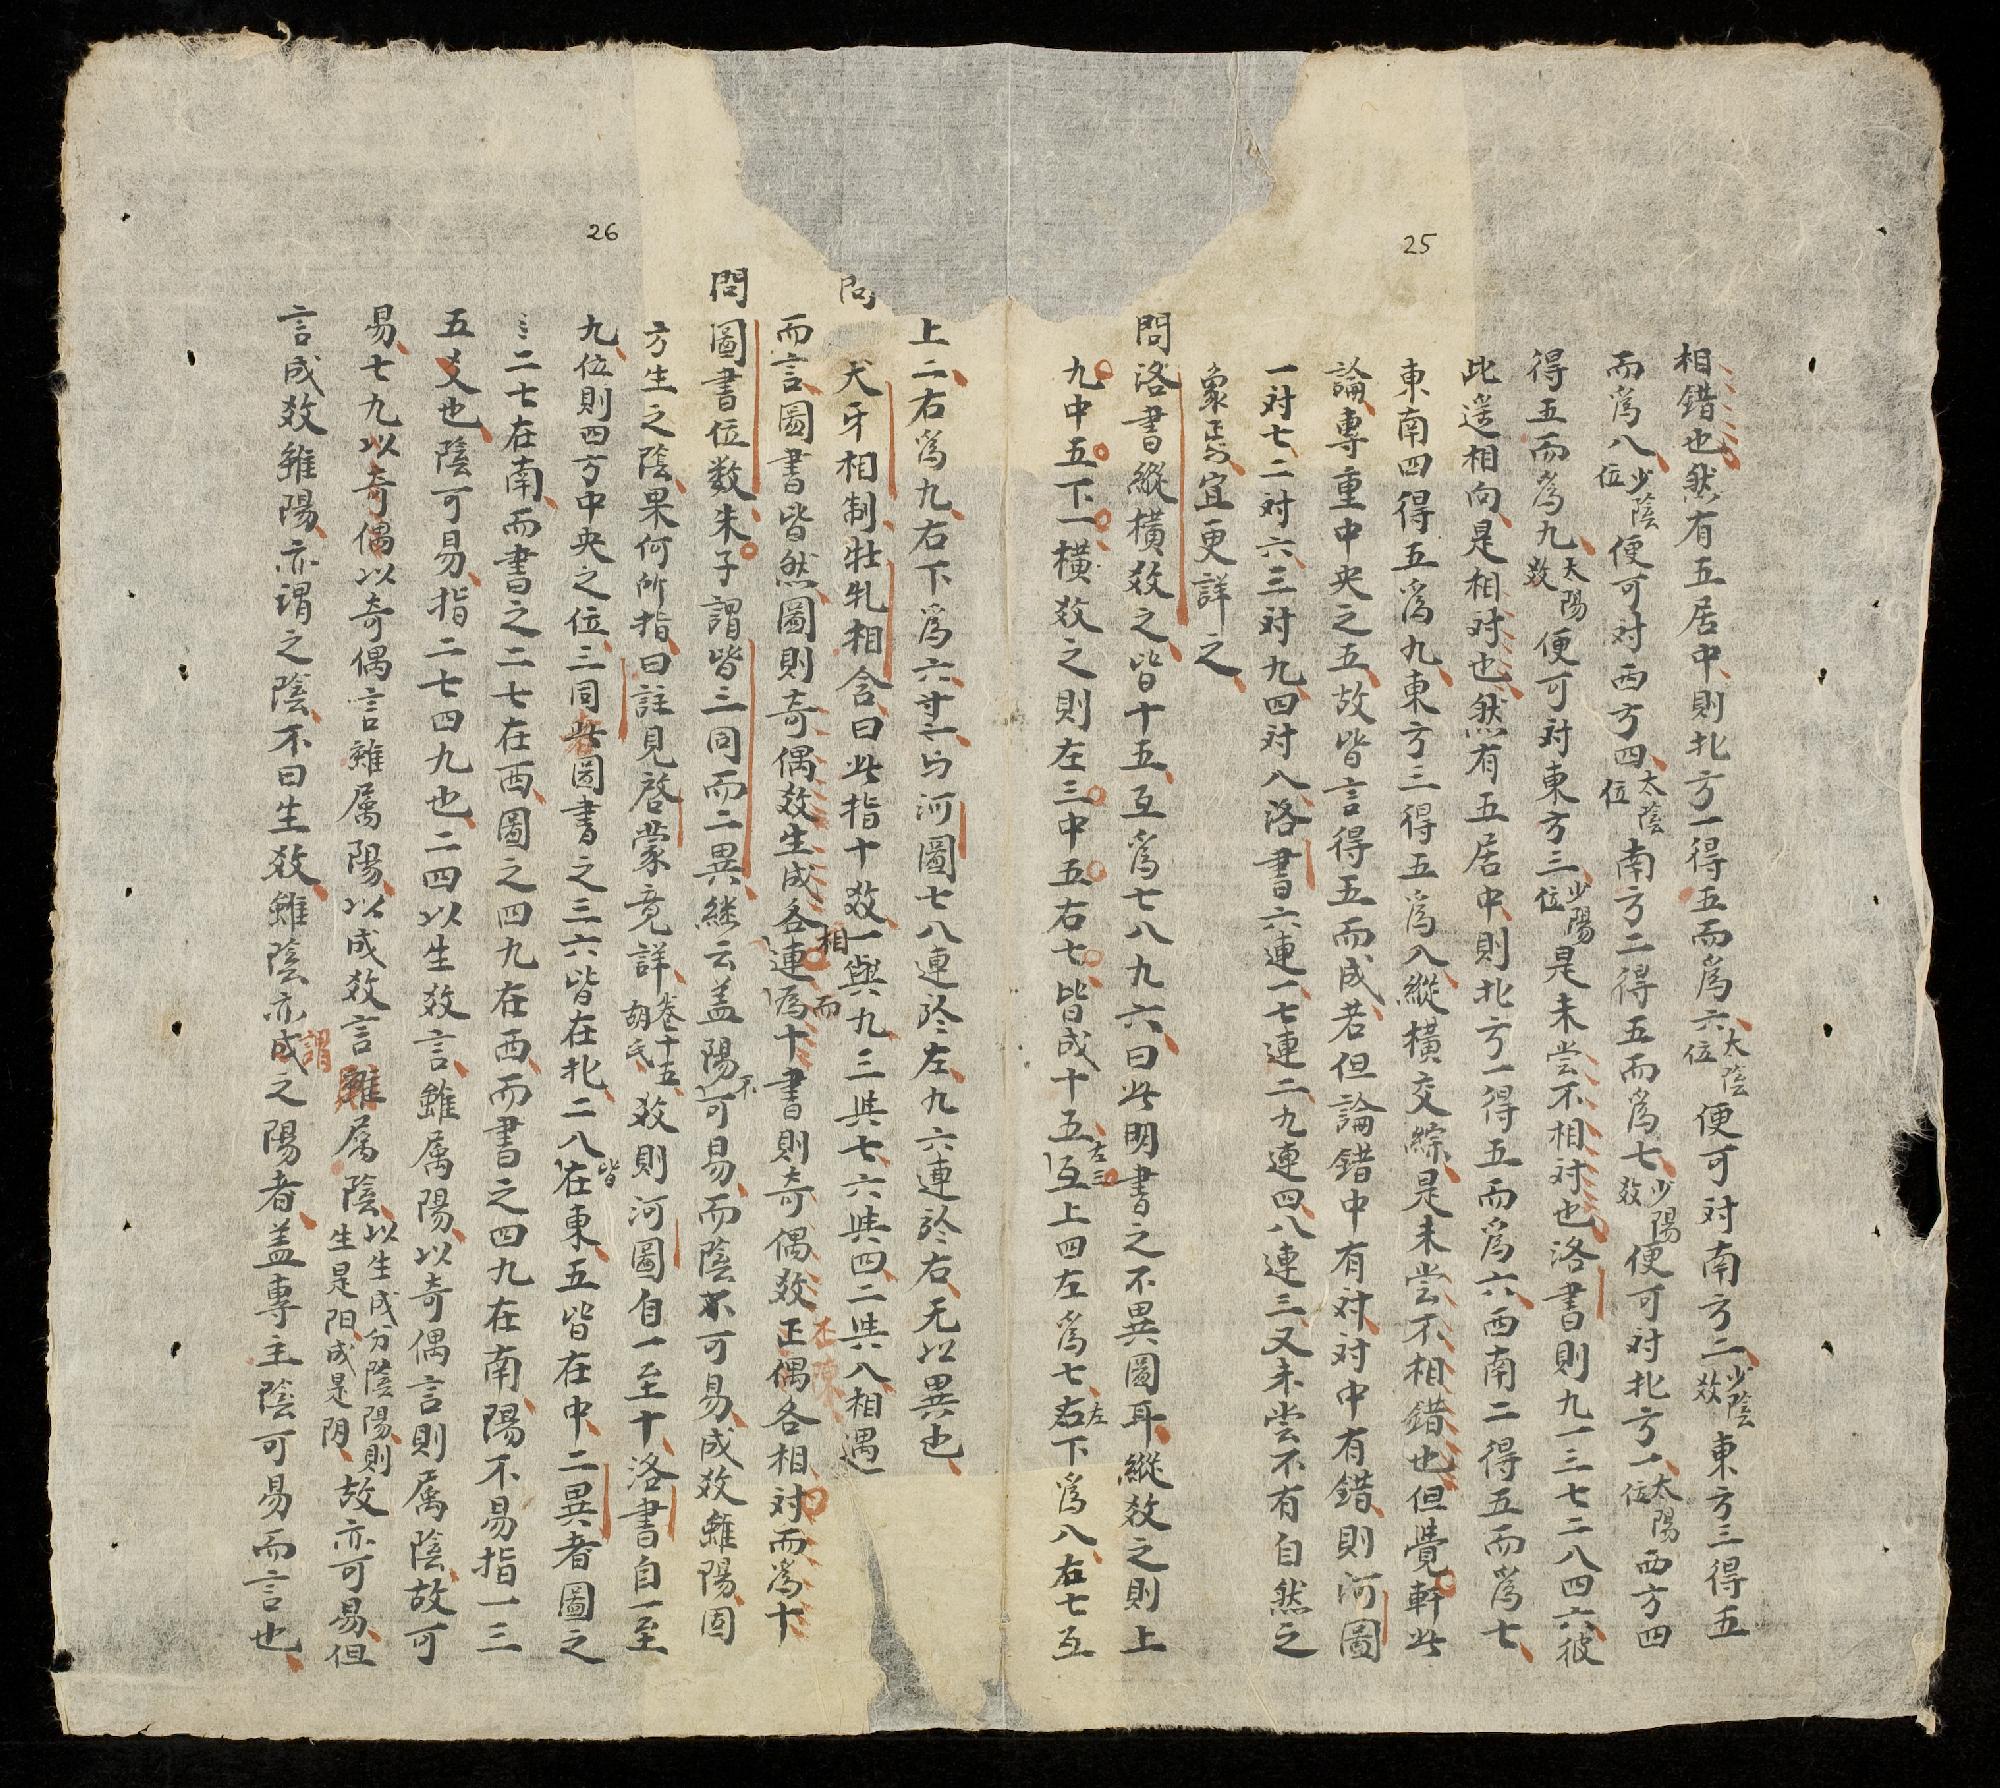 25
相錯也然有五居中則北方一得五而爲六太陰位便可対南方二少陰数東方三得五
而爲八少陰位便可対西方四太陰位南方二得五而爲七少陽数便可対北方一太陽位西方四
得五而爲九太陽数便可対東方三少陽位是未尝不相対也洛書則九一三七二八四六彼
此遥相向是相対也然有五居中則北方一得五而爲六西南二得五而爲七
東南四得五爲九東方三得五爲八縱横交綜是未尝不相錯也但覺軒此
論專重中央之五故皆言得五而成若但論錯中有対対中有錯則河圖
一対七二対六三対九四対八洛書六連一七連二九連四八連三又未尝不有自然之
象焉宜更詳之
問洛書縱横数之皆十五互爲七八九六曰此明書之不異圖耳縱数之則上
九中五下一横数之則左三中五右七皆成十五左三互上四左爲七右左下爲八右七互
上二右爲九右下爲六与河圖七八連於左九六連於右无以異也
26
問犬牙相制牡牝相含曰此指十数一與九三與七六與四二與八相遇
而言圖書皆然圖則竒偶数生成各相連而爲十書則竒偶数正偶各相対而爲十
問圖書位数朱子謂皆三同而二異継云盖陽不可易而陰不可易成数雖陽固
方生之陰果何所指曰註見啓蒙竟詳卷十五胡氏数則河圖自一至十洛書自一至
九位則四方中央之位三同者圖書之三六皆在北二八皆在東五皆在中二異者圖之
二七在南而書之二七在西圖之四九在西而書之四九在南陽不易指一三
五爻也陰可易指二七四九也二四以生数言雖属陽以竒偶言則属陰故可
易七九以竒偶以竒偶言雖属陽以成数言雖属陰以生成分陰陽則生是阳成是阴故亦可易但
言成数雖陽亦谓之陰不曰生数雖陰亦謂之陽者盖專主陰可易而言也